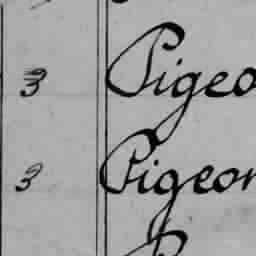 3 Pigeo
3 Pigeon